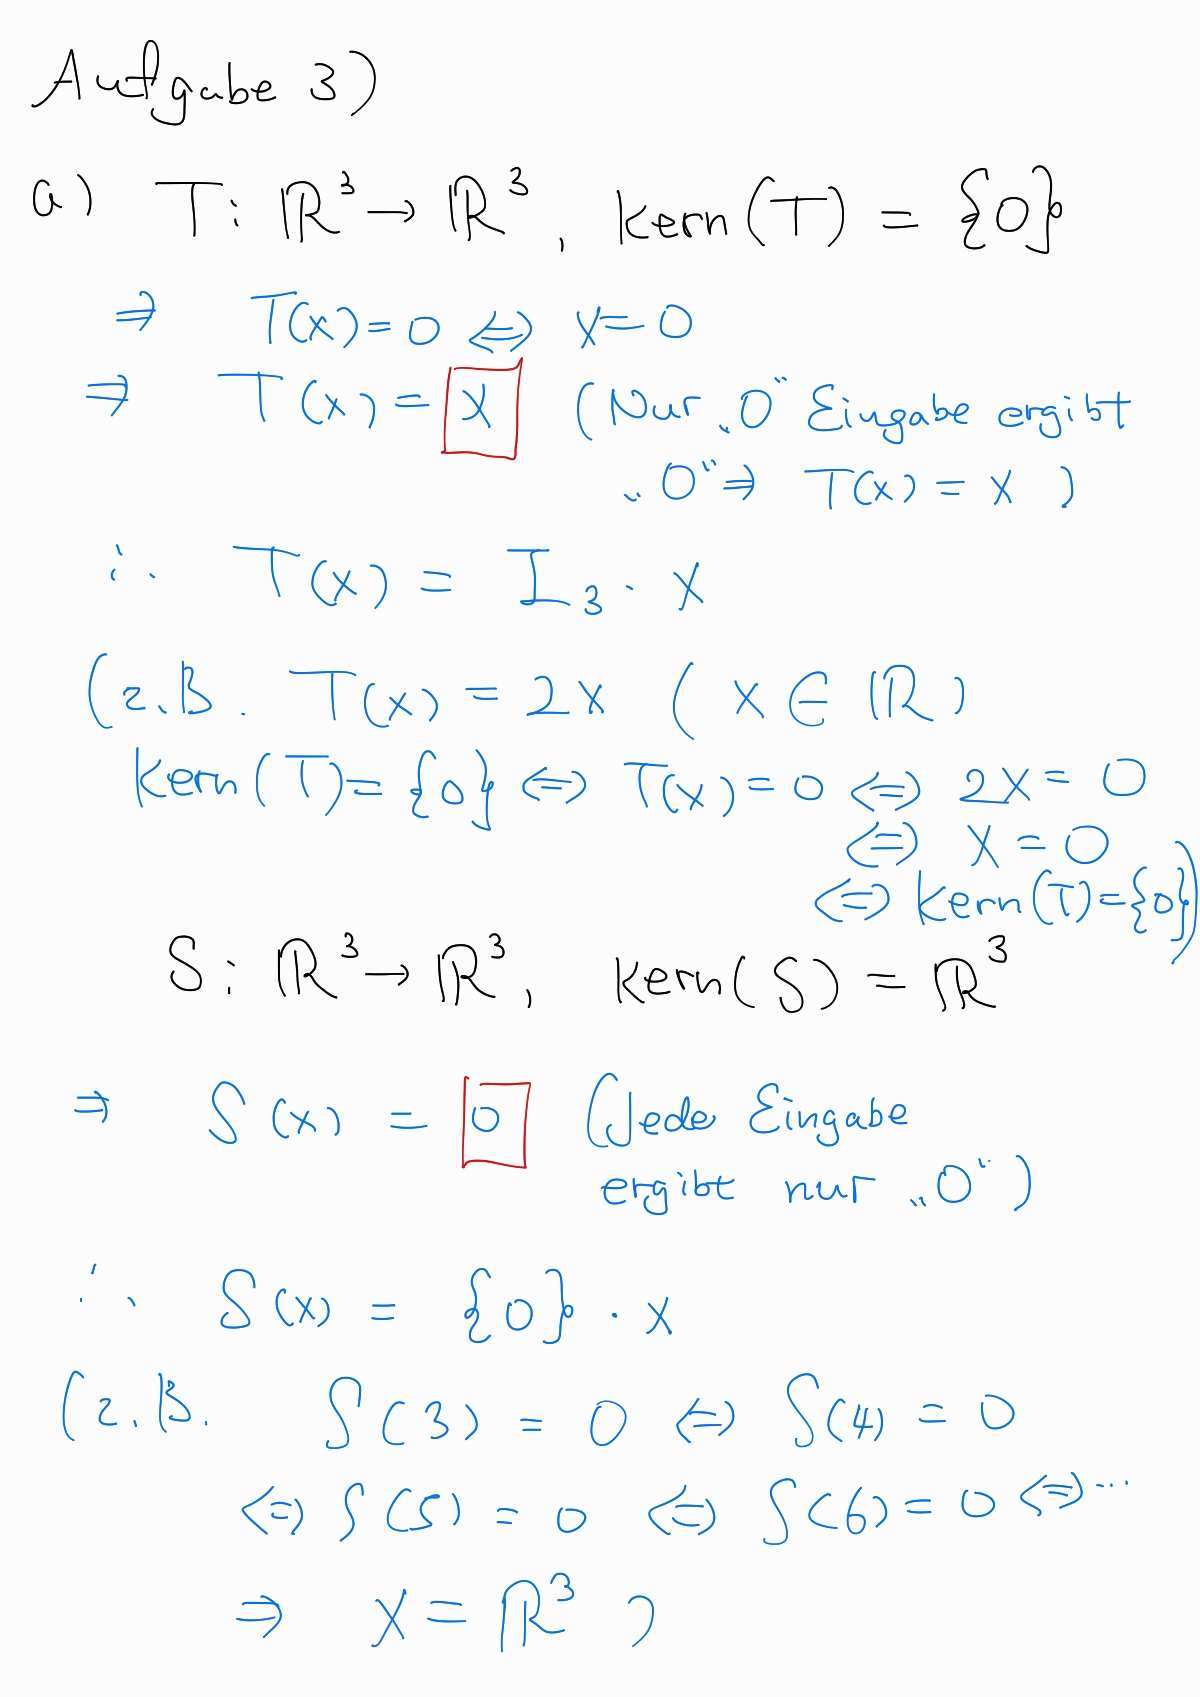 Aufgabe 3)
a) T: ℝ³ → ℝ³, kern(T) = {0}
⇒ T(x) = 0 ⇔ x = 0
⇒ T(x) = x (Nur „0“ Eingabe ergibt
„0“ ⇒ T(x) = x )
∴ T(x) = I₃ · x
(z.B. T(x) = 2x ( x ∈ ℝ )
kern(T) = {0} ⇔ T(x) = 0 ⇔ 2x = 0
⇔ x = 0
⇔ kern(T) = {0})
S: ℝ³ → ℝ³, kern(S) = ℝ³
⇒ S(x) = 0 (Jede Eingabe
ergibt nur „0“)
∴ S(x) = {0} · x
(z.B. S(3) = 0 ⇔ S(4) = 0
⇔ S(5) = 0 ⇔ S(6) = 0 ⇔ ...
⇒ x = ℝ³ )